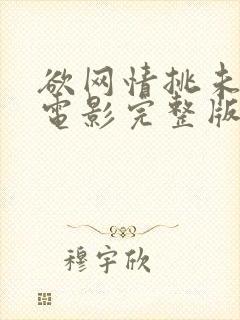 欲网情挑未
電影完整版
穆宇欣